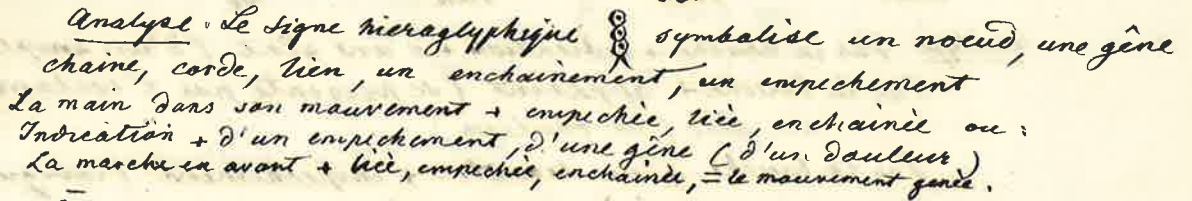 Analyse. Le signe hieraglyphique 𓎛 symbolise un noeud, une gêne
chaine, corde, lien, un enchainement, un empechement
La main dans son mouvement + empechée, liée, enchainée ou:
Indication + d'un empechement, d'une gêne (d'un douleur)
La marche en avant + liée, empechée, enchainée, = le mouvement genée.